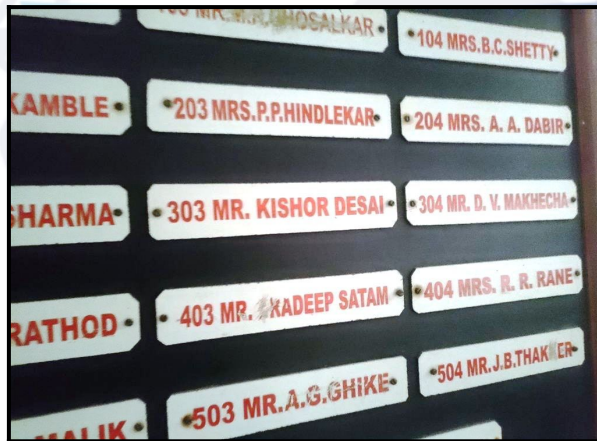 103 MR. GHOSALKAR
104 MRS.B.C.SHETTY
KAMBLE
203 MRS.P.P.HINDLEKAR
204 MRS. A. A. DABIR
SHARMA
303 MR. KISHOR DESAI
304 MR. D. V. MAKHECHA
RATHOD
403 MR. KADEEP SATAM
404 MRS. R. R. RANE
MALIK
503 MR.A.G.GHIKE
504 MR.J.B.THAKKER